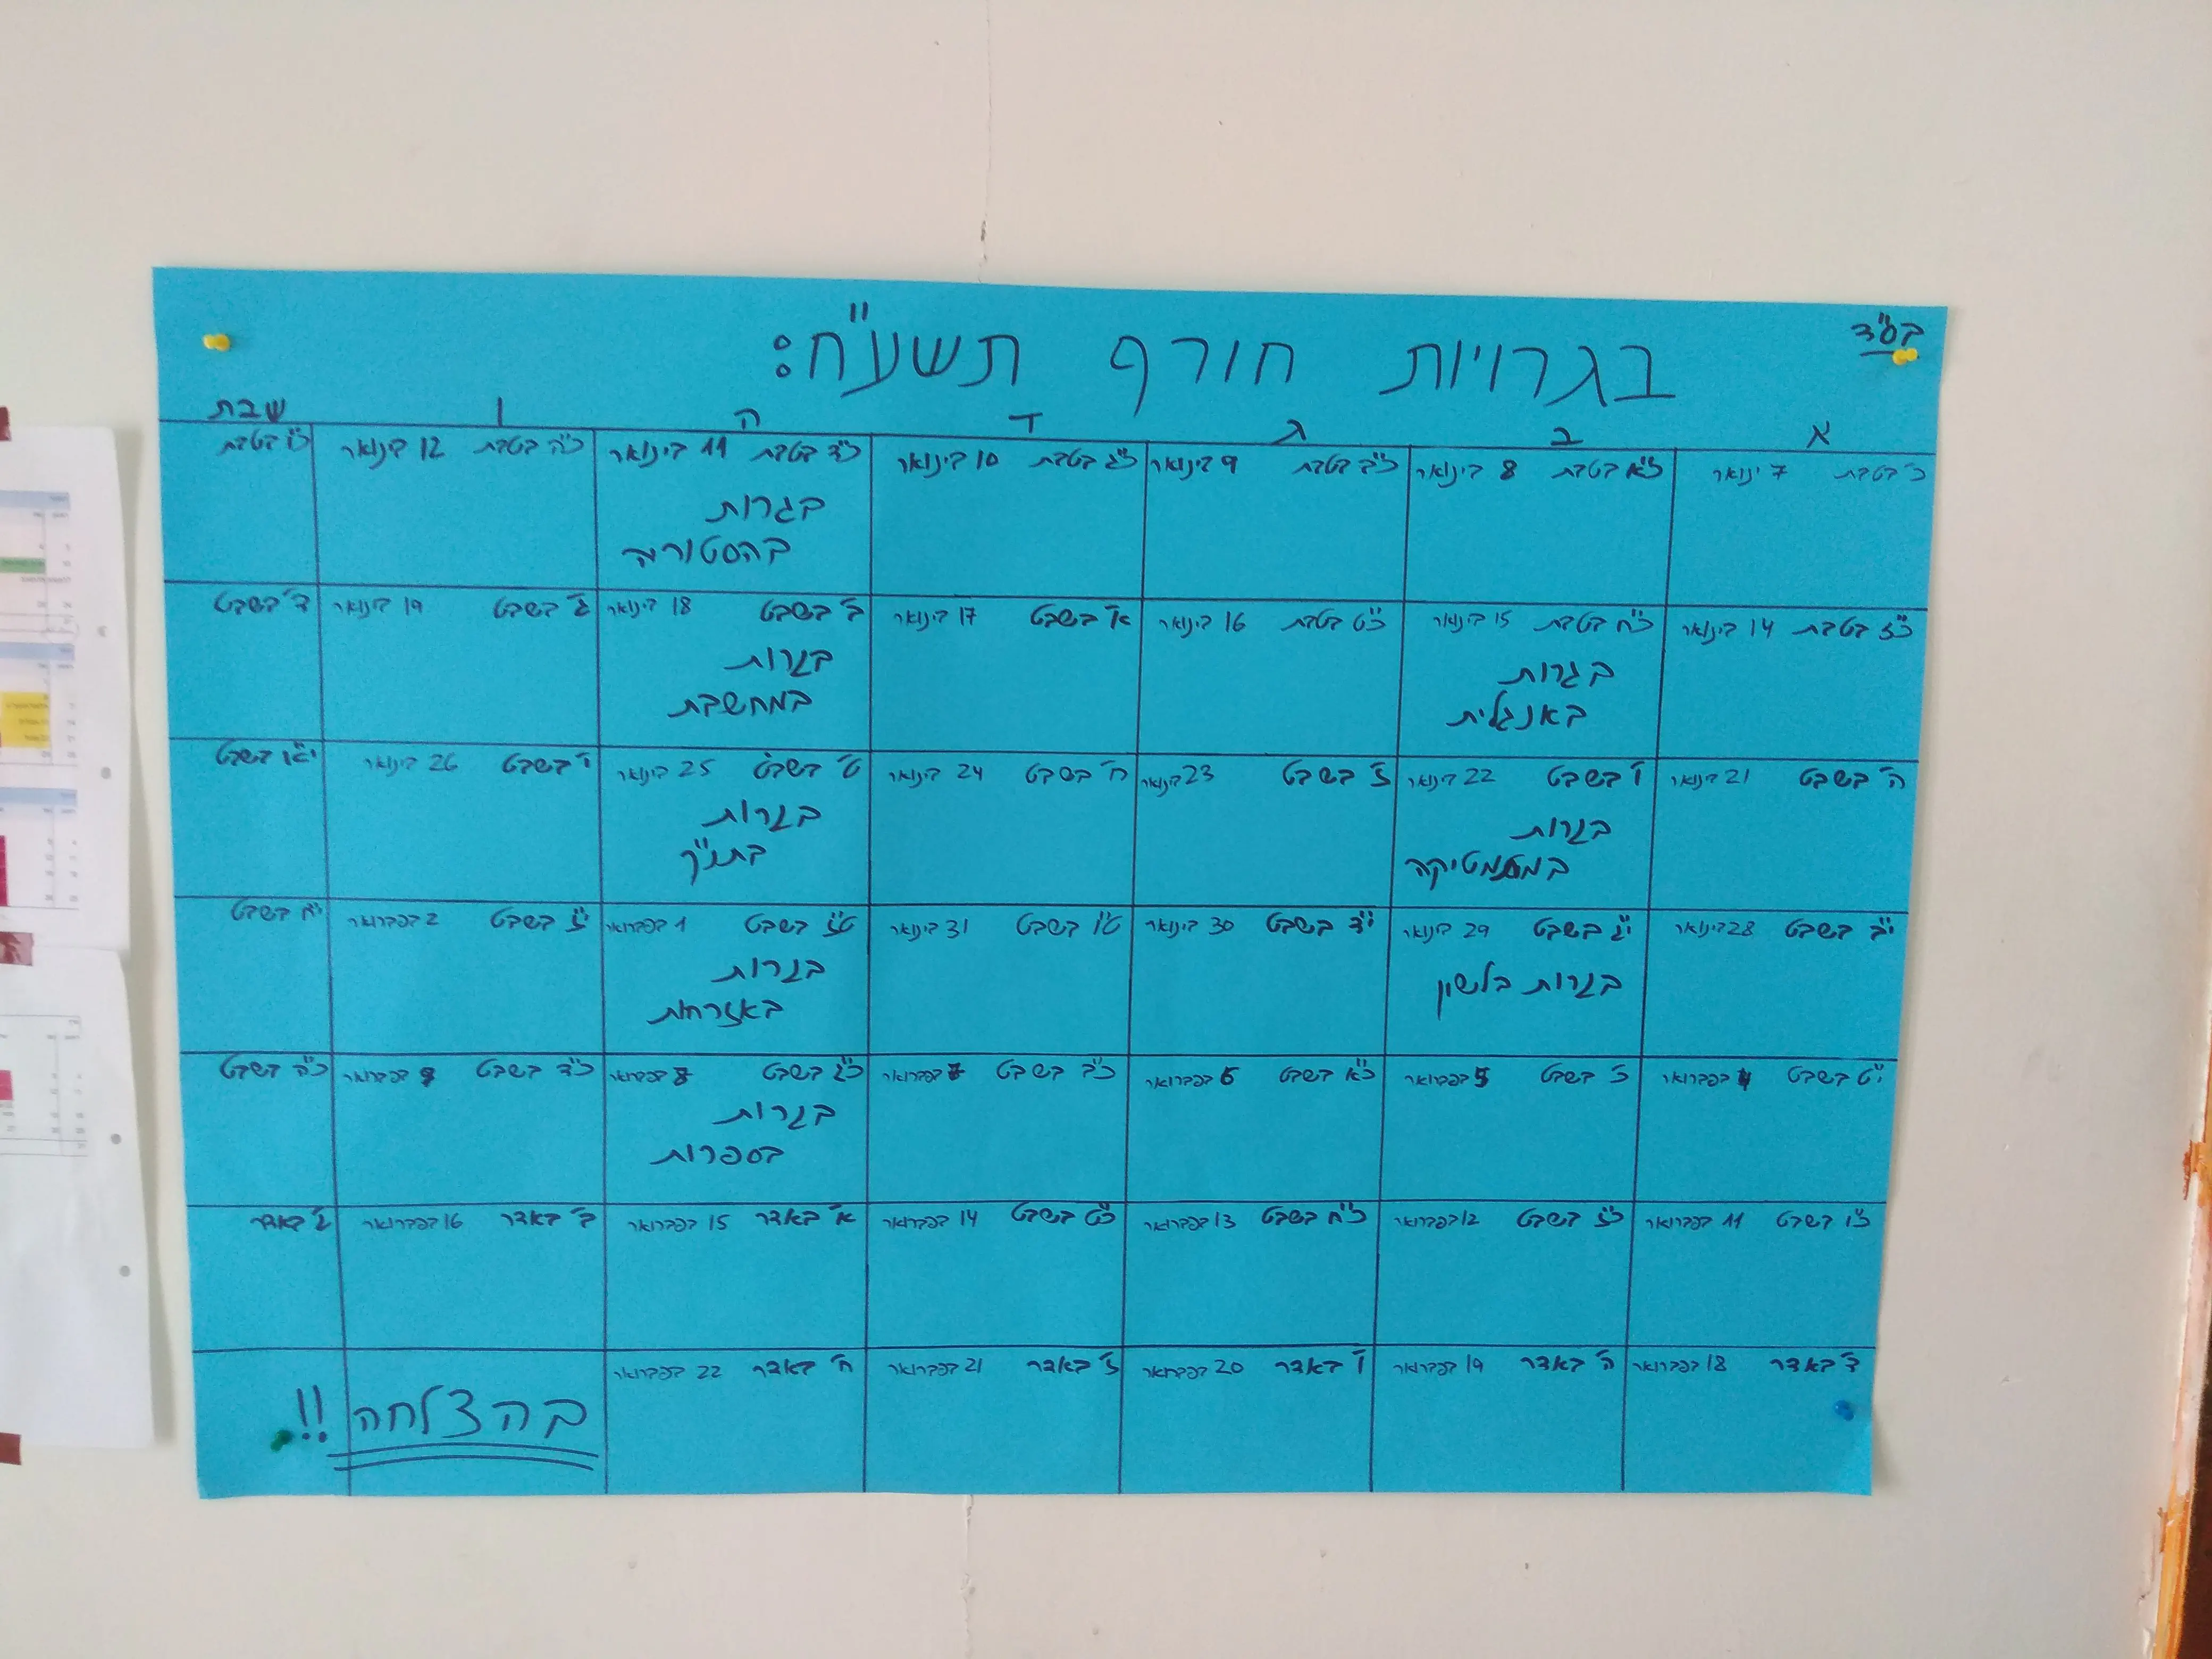 בס"ד
בגרויות חורף תשע"ח:
א ב ג ד ה ו שבת
כ' בטבת 7 ינואר
כ"א בטבת 8 בינואר
כ"ב בטבת 9 בינואר
כ"ג בטבת 10 בינואר
כ"ד בטבת 11 בינואר
בגרות
בהסטוריה
כ"ה בטבת 12 בינואר
כ"ו בטבת
כ"ז בטבת 14 בינואר
כ"ח בטבת 15 בינואר
בגרות
באנגלית
כ"ט בטבת 16 בינואר
א' בשבט 17 בינואר
ב' בשבט 18 בינואר
בגרות
במחשבת
ג' בשבט 19 בינואר
ד' בשבט
ה' בשבט 21 בינואר
ו' בשבט 22 בינואר
בגרות
במתמטיקה
ז' בשבט 23 בינואר
ח' בשבט 24 בינואר
ט' בשבט 25 בינואר
בגרות
בתנ"ך
י' בשבט 26 בינואר
י"א בשבט
י"ב בשבט 28 בינואר
י"ג בשבט 29 בינואר
בגרות בלשון
י"ד בשבט 30 בינואר
ט"ו בשבט 31 בינואר
ט"ז בשבט 1 בפברואר
בגרות
באזרחות
י"ז בשבט 2 בפברואר
י"ח בשבט
י"ט בשבט 4 בפברואר
כ' בשבט 5 בפברואר
כ"א בשבט 6 בפברואר
כ"ב בשבט 7 בפברואר
כ"ג בשבט 8 בפברואר
בגרות
בספרות
כ"ד בשבט 9 בפברואר
כ"ה בשבט
כ"ו בשבט 11 בפברואר
כ"ז בשבט 12 בפברואר
כ"ח בשבט 13 בפברואר
כ"ט בשבט 14 בפברואר
א' באדר 15 בפברואר
ב' באדר 16 בפברואר
ג' באדר
ד' באדר 18 בפברואר
ה' באדר 19 בפברואר
ו' באדר 20 בפברואר
ז' באדר 21 בפברואר
ח' באדר 22 בפברואר
בהצלחה!!